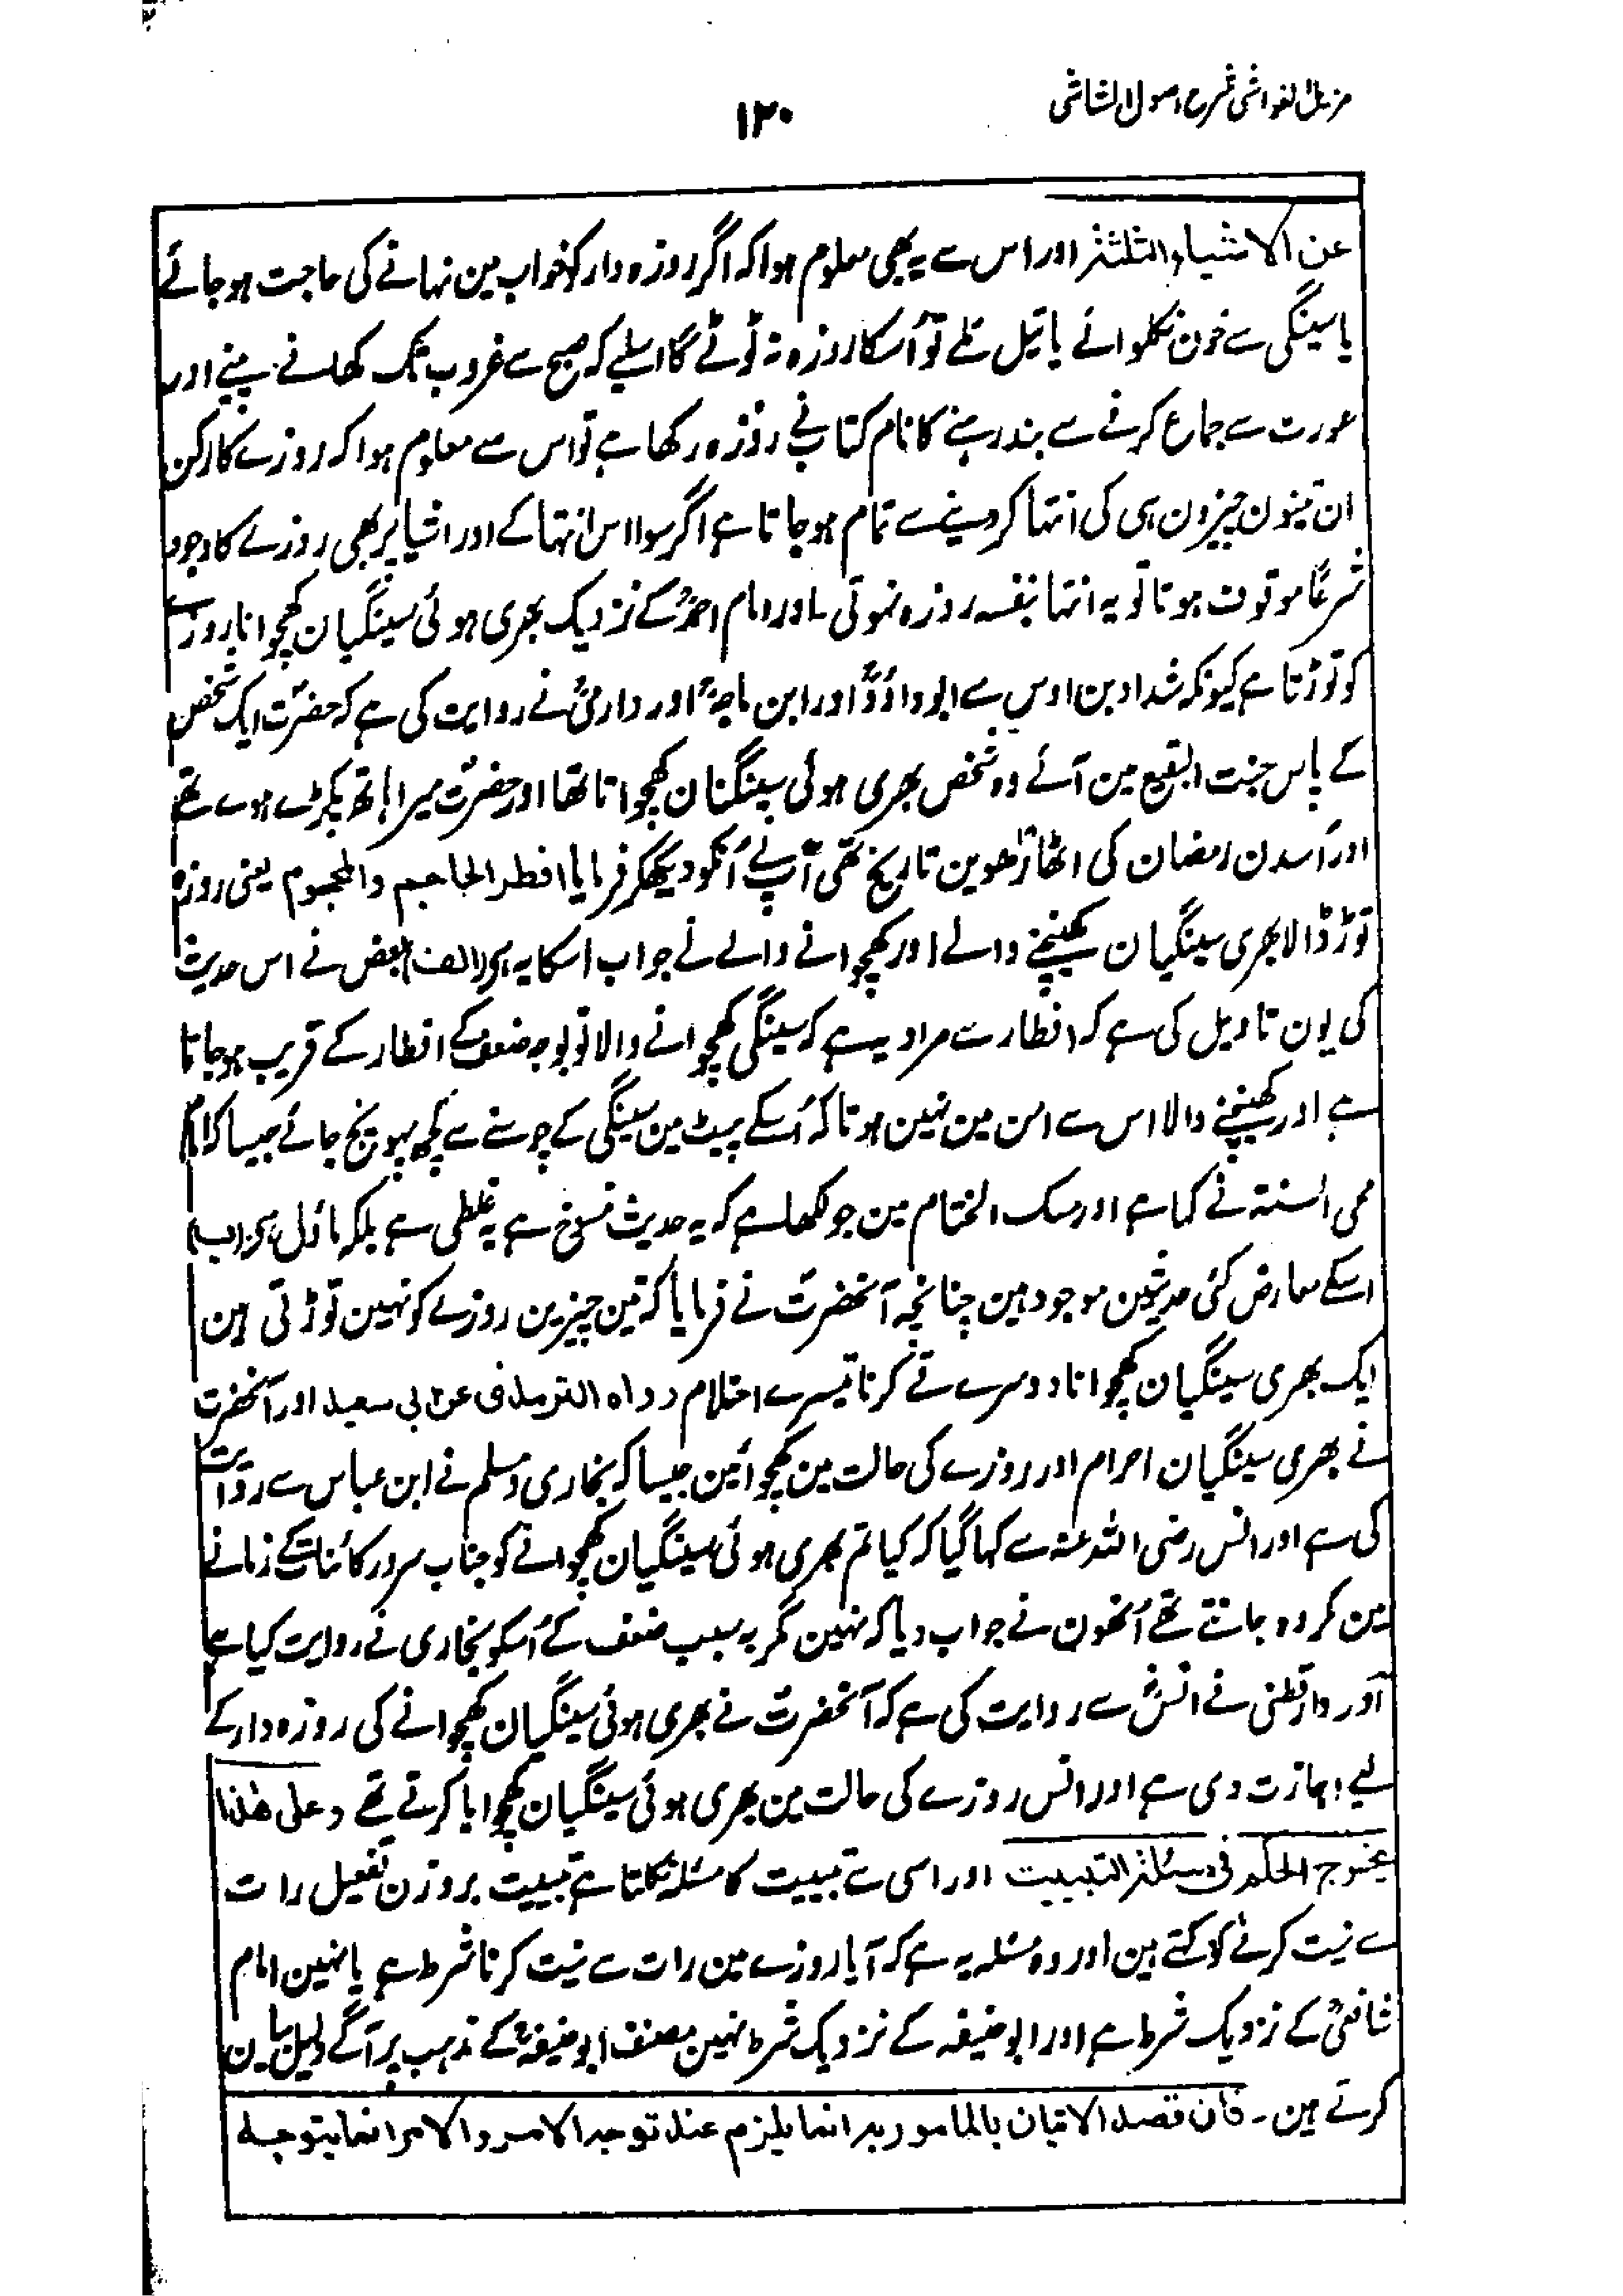 مزیل الغواشی شرح اصول الشاشی
۱۲۰
عن الاشیاء الثلثۃ اور اس سے یہ بھی معلوم ہوا کہ اگر روزہ دار کو خواب مین نہانے کی حاجت ہو جائے
یا سینگی سے خون نکلوائے یا تیل ملے تو اُسکا روزہ نہ ٹوٹے گا اسلیے کہ صبح سے غروب تک کھانے پینے اور
عورت سے جماع کرنے سے بند رہنے کا نام کتاب نے روزہ رکھا ہے تو اس سے معلوم ہوا کہ روزے کا رکن
ان تینون چیزون ہی کی انتہا کر دینے سے تمام ہو جاتا ہے اگر سوا اس انتہا کے اور اشیا پر بھی روزے کا وجود
شرعًا موقوف ہوتا تو یہ انتہا بنفسہ روزہ نہوتی ۔ اور امام احمدؒ کے نزدیک بھری ہوئی سینگیان کھچوانا روزے
کو توڑتا ہے کیونکہ شداد بن اوس سے ابو داؤدؒ اور ابن ماجہؒ اور دارمیؒ نے روایت کی ہے کہ حضرتؐ ایک شخص
کے پاس جنت البقیع مین آئے وہ شخص بھری ہوئی سینگیان کھچواتا تھا اور حضرتؐ میرا ہاتھ پکڑے ہوے تھے
اور اُسدن رمضان کی اٹھارھوین تاریخ تھی آپؐ نے اُنکو دیکھکر فرمایا افطر الحاجم والمحجوم یعنی روزہ
توڑ ڈالا بھری سینگیان کھینچنے والے اور کھچوانے والے نے جواب اسکا یہ ہی (الف) بعض نے اس حدیث
کی یون تاویل کی ہے کہ افطار سے مراد یہ ہے کہ سینگی کھچوانے والا تو بوجہ ضعف کے افطار کے قریب ہو جاتا
ہے اور کھینچنے والا اس سے امن مین نہین ہوتا کہ اُسکے پیٹ مین سینگی کے چوسنے سے کچھ پہونچ جائے جیسا کہ امام
محی السنۃ نے کہا ہے اور مسک الختام مین جو لکھا ہے کہ یہ حدیث منسوخ ہے یہ غلطی ہے بلکہ مأول ہی (ب)
اسکے معارض کئی حدیثین موجود ہین چنانچہ آنحضرتؐ نے فرمایا کہ تین چیزین روزے کو نہین توڑتی ہین
ایک بھری سینگیان کھچوانا دوسرے قے کرنا تیسرے احتلام رواہ الترمذی عن ابی سعید اور آنحضرت
نے بھری سینگیان احرام اور روزے کی حالت مین کھچوائین جیسا کہ بخاری و مسلم نے ابن عباس سے روایت
کی ہے اور انس رضی اللہ عنہ سے کہا گیا کہ کیا تم بھری ہوئی سینگیان کھچوانے کو جناب سرور کائنات کے زمانے
مین مکروہ جانتے تھے اُنھون نے جواب دیا کہ نہین مگر بہ سبب ضعف کے اُسکو بخاری نے روایت کیا ہے
اور دارقطنی نے انسؓ سے روایت کی ہے کہ آنحضرتؐ نے بھری ہوئی سینگیان کھچوانے کی روزہ دار کے
لیے اجازت دی ہے اور انس روزے کی حالت مین بھری ہوئی سینگیان کھچوایا کرتے تھے وعلی ھٰذا
یخرج الحکم فی مسئلۃ التبییت اور اسی سے تبییت کا مسئلہ نکلتا ہے تبییت بروزن تفعیل رات
سے نیت کرنے کو کہتے ہین اور وہ مسئلہ یہ ہے کہ آیا روزے مین رات سے نیت کرنا شرط ہے یا نہین امام
شافعیؒ کے نزدیک شرط ہے اور ابو حنیفہ کے نزدیک شرط نہین مصنف ابو حنیفہؒ کے مذہب پر آگے دلیل بیان
کرتے ہین ۔ فان قصد الاتیان بالمامور بہ انما یلزم عند توجہ الامر والامر انما یتوجہ